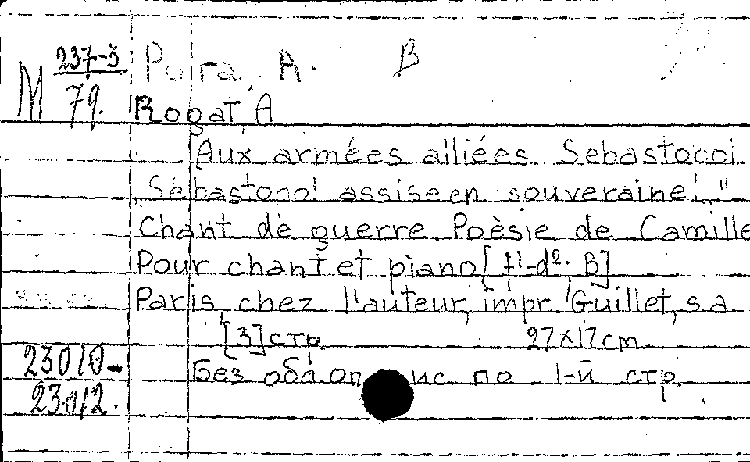 М 237-5 Рога, А. В
79.
Rogat, A
Aux armées alliées. Sebastopol.
"Sébastopol assise en souveraine!.."
Chant de guerre Poèsie de Camille
Pour chant et piano [f¹-d². B]
Paris, chez l'auteur, impr. Guillet, s.a
[3] стр. 27x17cm.
23010- Без обл. оп ис. по 1-й стр.
23012.